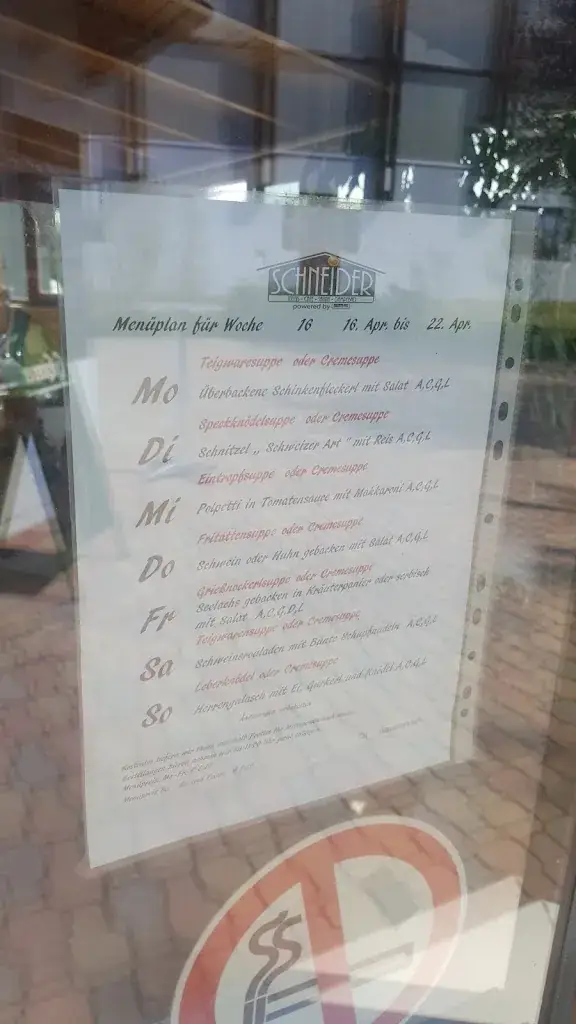 SCHNEIDER
powered by
Menüplan für Woche 16 16. Apr. bis 22. Apr.
Teigwarensuppe oder Cremesuppe
Mo Überbackene Schinkenfleckerl mit Salat A,C,G,L
Speckknödelsuppe oder Cremesuppe
Di Schnitzel „ Schweizer Art " mit Reis A,C,G,L
Eintropfsuppe oder Cremesuppe
Mi Polpetti in Tomatensauce mit Makkaroni A,C,G,L
Fritattensuppe oder Cremesuppe
Do Schwein oder Huhn gebacken mit Salat A,C,G,L
Grießnockerlsuppe oder Cremesuppe
Seelachs gebacken in Kräuterpanier oder serbisch
Fr mit Salat A,C,G,D,L
Teigwarensuppe oder Cremesuppe
Sa Schweinsrouladen mit Bunte Schupfnudeln A,C,G,L
Leberknödel oder Cremesuppe
So Herrengulasch mit Ei, Gurkerl und Knödel A,C,G,L